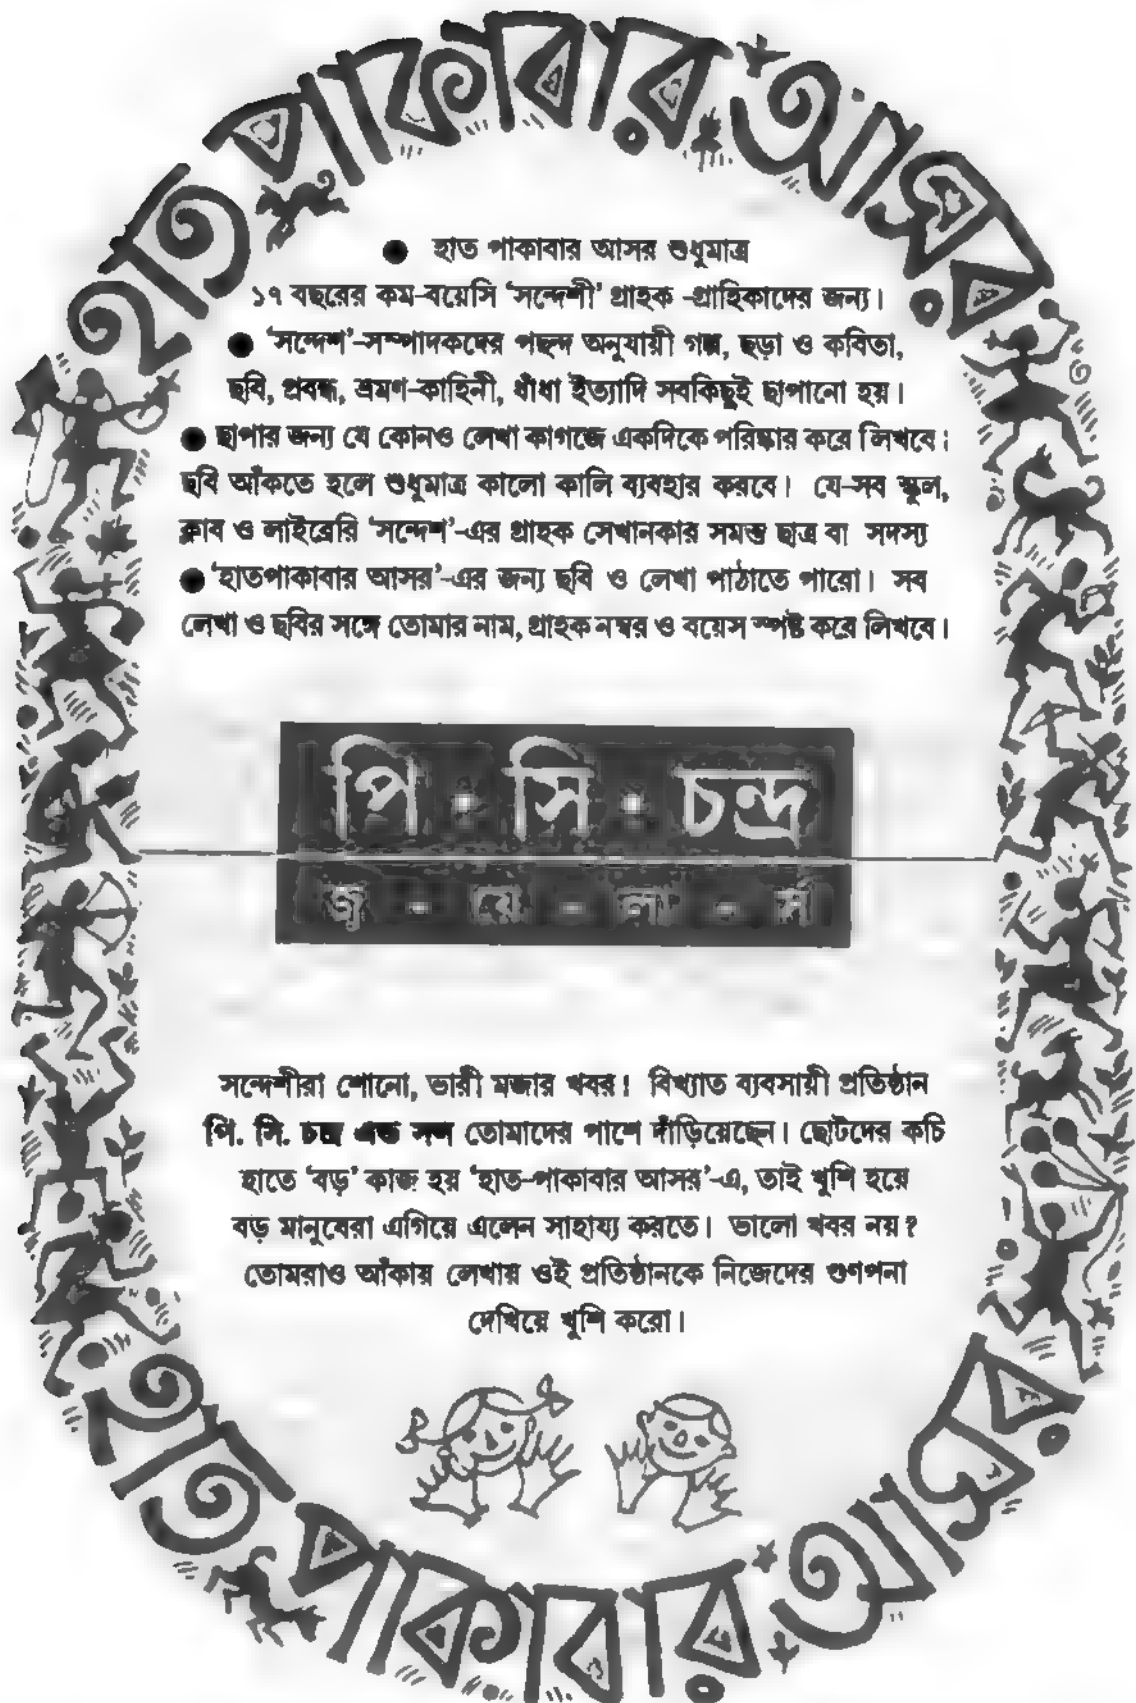 হাত পাকাবার আসর
● হাত পাকাবার আসর শুধুমাত্র
১৭ বছরের কম-বয়েসি ‘সন্দেশী’ গ্রাহক -গ্রাহিকাদের জন্য।
● ‘সন্দেশ’-সম্পাদকদের পছন্দ অনুযায়ী গল্প, ছড়া ও কবিতা,
ছবি, প্রবন্ধ, ভ্রমণ-কাহিনী, ধাঁধা ইত্যাদি সবকিছুই ছাপানো হয়।
● ছাপার জন্য যে কোনও লেখা কাগজে একদিকে পরিষ্কার করে লিখবে।
ছবি আঁকতে হলে শুধুমাত্র কালো কালি ব্যবহার করবে। যে-সব স্কুল,
ক্লাব ও লাইব্রেরি ‘সন্দেশ’-এর গ্রাহক সেখানকার সমস্ত ছাত্র বা সদস্য
● ‘হাতপাকাবার আসর’-এর জন্য ছবি ও লেখা পাঠাতে পারো। সব
লেখা ও ছবির সঙ্গে তোমার নাম, গ্রাহক নম্বর ও বয়েস স্পষ্ট করে লিখবে।
পি · সি · চন্দ্র
জু · য়ে · লা · র্স
সন্দেশীরা শোনো, ভারী মজার খবর! বিখ্যাত ব্যবসায়ী প্রতিষ্ঠান
পি. সি. চন্দ্র এন্ড সন্স তোমাদের পাশে দাঁড়িয়েছেন। ছোটদের কচি
হাতে ‘বড়’ কাজ হয় ‘হাত-পাকাবার আসর’-এ, তাই খুশি হয়ে
বড় মানুষেরা এগিয়ে এলেন সাহায্য করতে। ভালো খবর নয়?
তোমরাও আঁকায় লেখায় ওই প্রতিষ্ঠানকে নিজেদের গুণপনা
দেখিয়ে খুশি করো।
হাত পাকাবার আসর